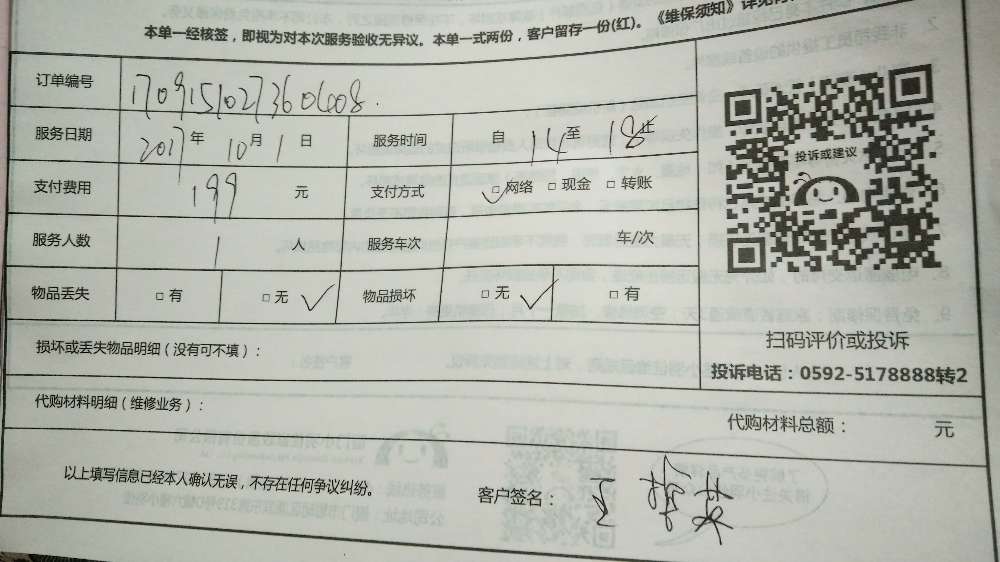 本单一经核签，即视为对本次服务验收无异议。本单一式两份，客户留存一份(红)。《维保须知》详见
订单编号 17091510273606008
服务日期 2017年 10月 1日 服务时间 自 14 至 18 止
支付费用 199 元 支付方式 ☑网络 □现金 □转账
服务人数 1 人 服务车次 车/次
物品丢失 □有 □无 ✓ 物品损坏 □无 ✓ □有
投诉或建议
扫码评价或投诉
投诉电话：0592-5178888转2
损坏或丢失物品明细（没有可不填）：
代购材料明细（维修业务）：
代购材料总额： 元
以上填写信息已经本人确认无误，不存在任何争议纠纷。
客户签名： 王